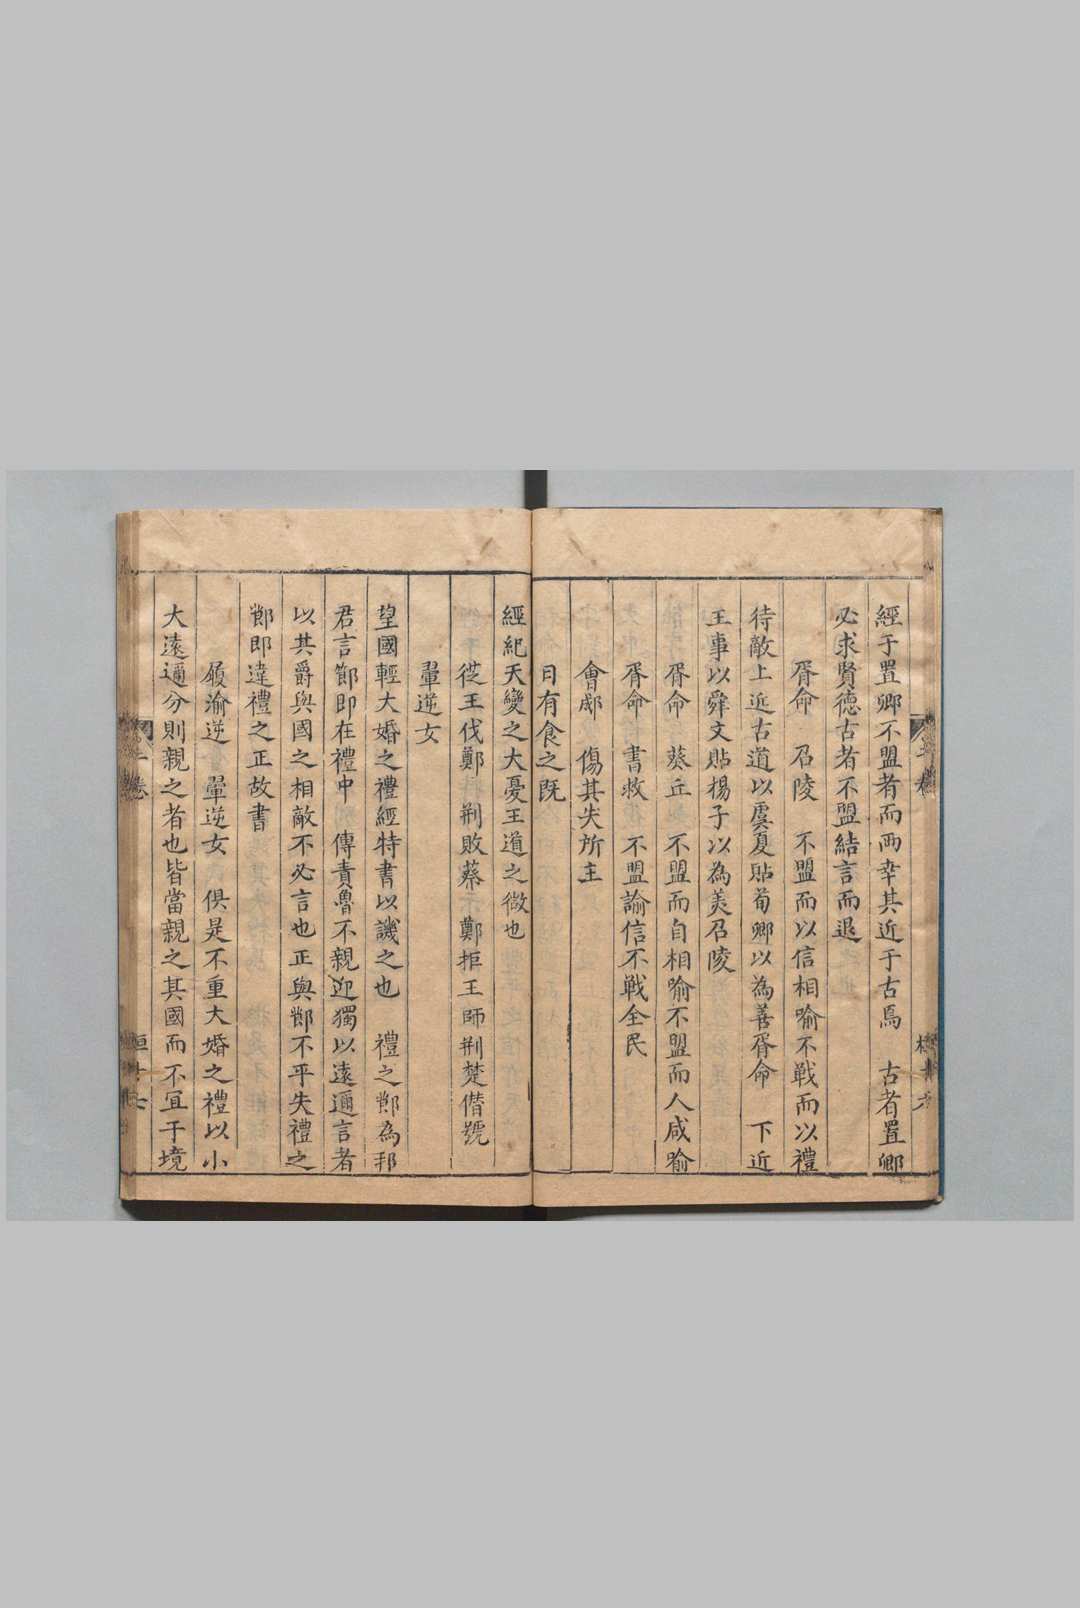 經于置卿不盟者而両幸其近于古焉　古者置卿
必求賢德古者不盟結言而退
胥命　召陵　不盟而以信相喻不戦而以禮
待敵上近古道以虞夏貼荀卿以為善胥命　下近
王事以舜文貼揚子以為美召陵
胥命　葵丘　不盟而自相喻不盟而人咸喻
胥命　書救　不盟諭信不戦全民
會郕　傷其失所主
日有食之既
經紀天變之大憂王道之微也
從王伐鄭　荆敗蔡　鄭拒王師荆楚僭號
翬逆女
望國輕大婚之禮經特書以譏之也　禮之節為邦
君言節即在禮中　傳責魯不親迎獨以遠邇言者
以其爵與國之相敵不必言也正與節不乎失禮之
節即違禮之正故書
履渝逆　翬逆女　俱是不重大婚之禮以小
大遠邇分則親之者也皆當親之其國而不宜于境